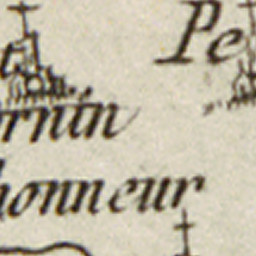 Pe
t
rnin
honneur